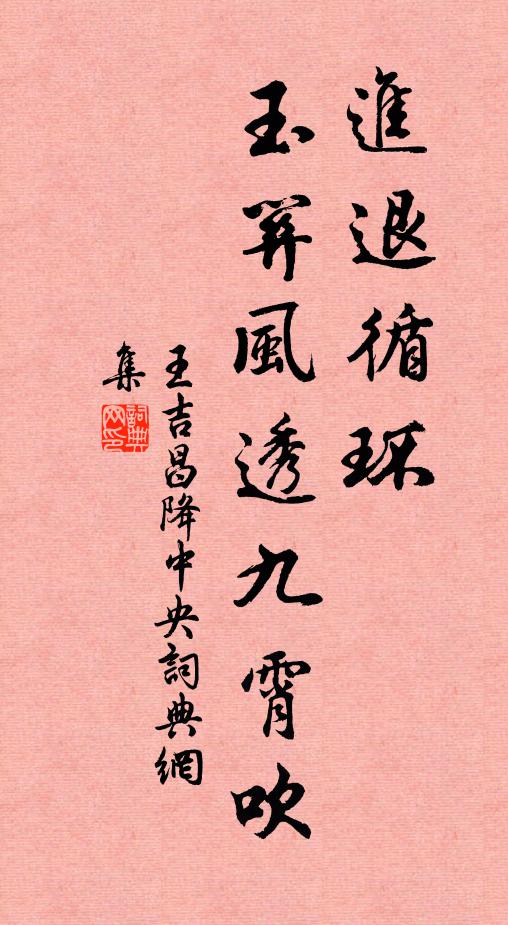 進退循环
玉笄風透九霄吹
王吉昌降中央詞典網
集
詞典
网印